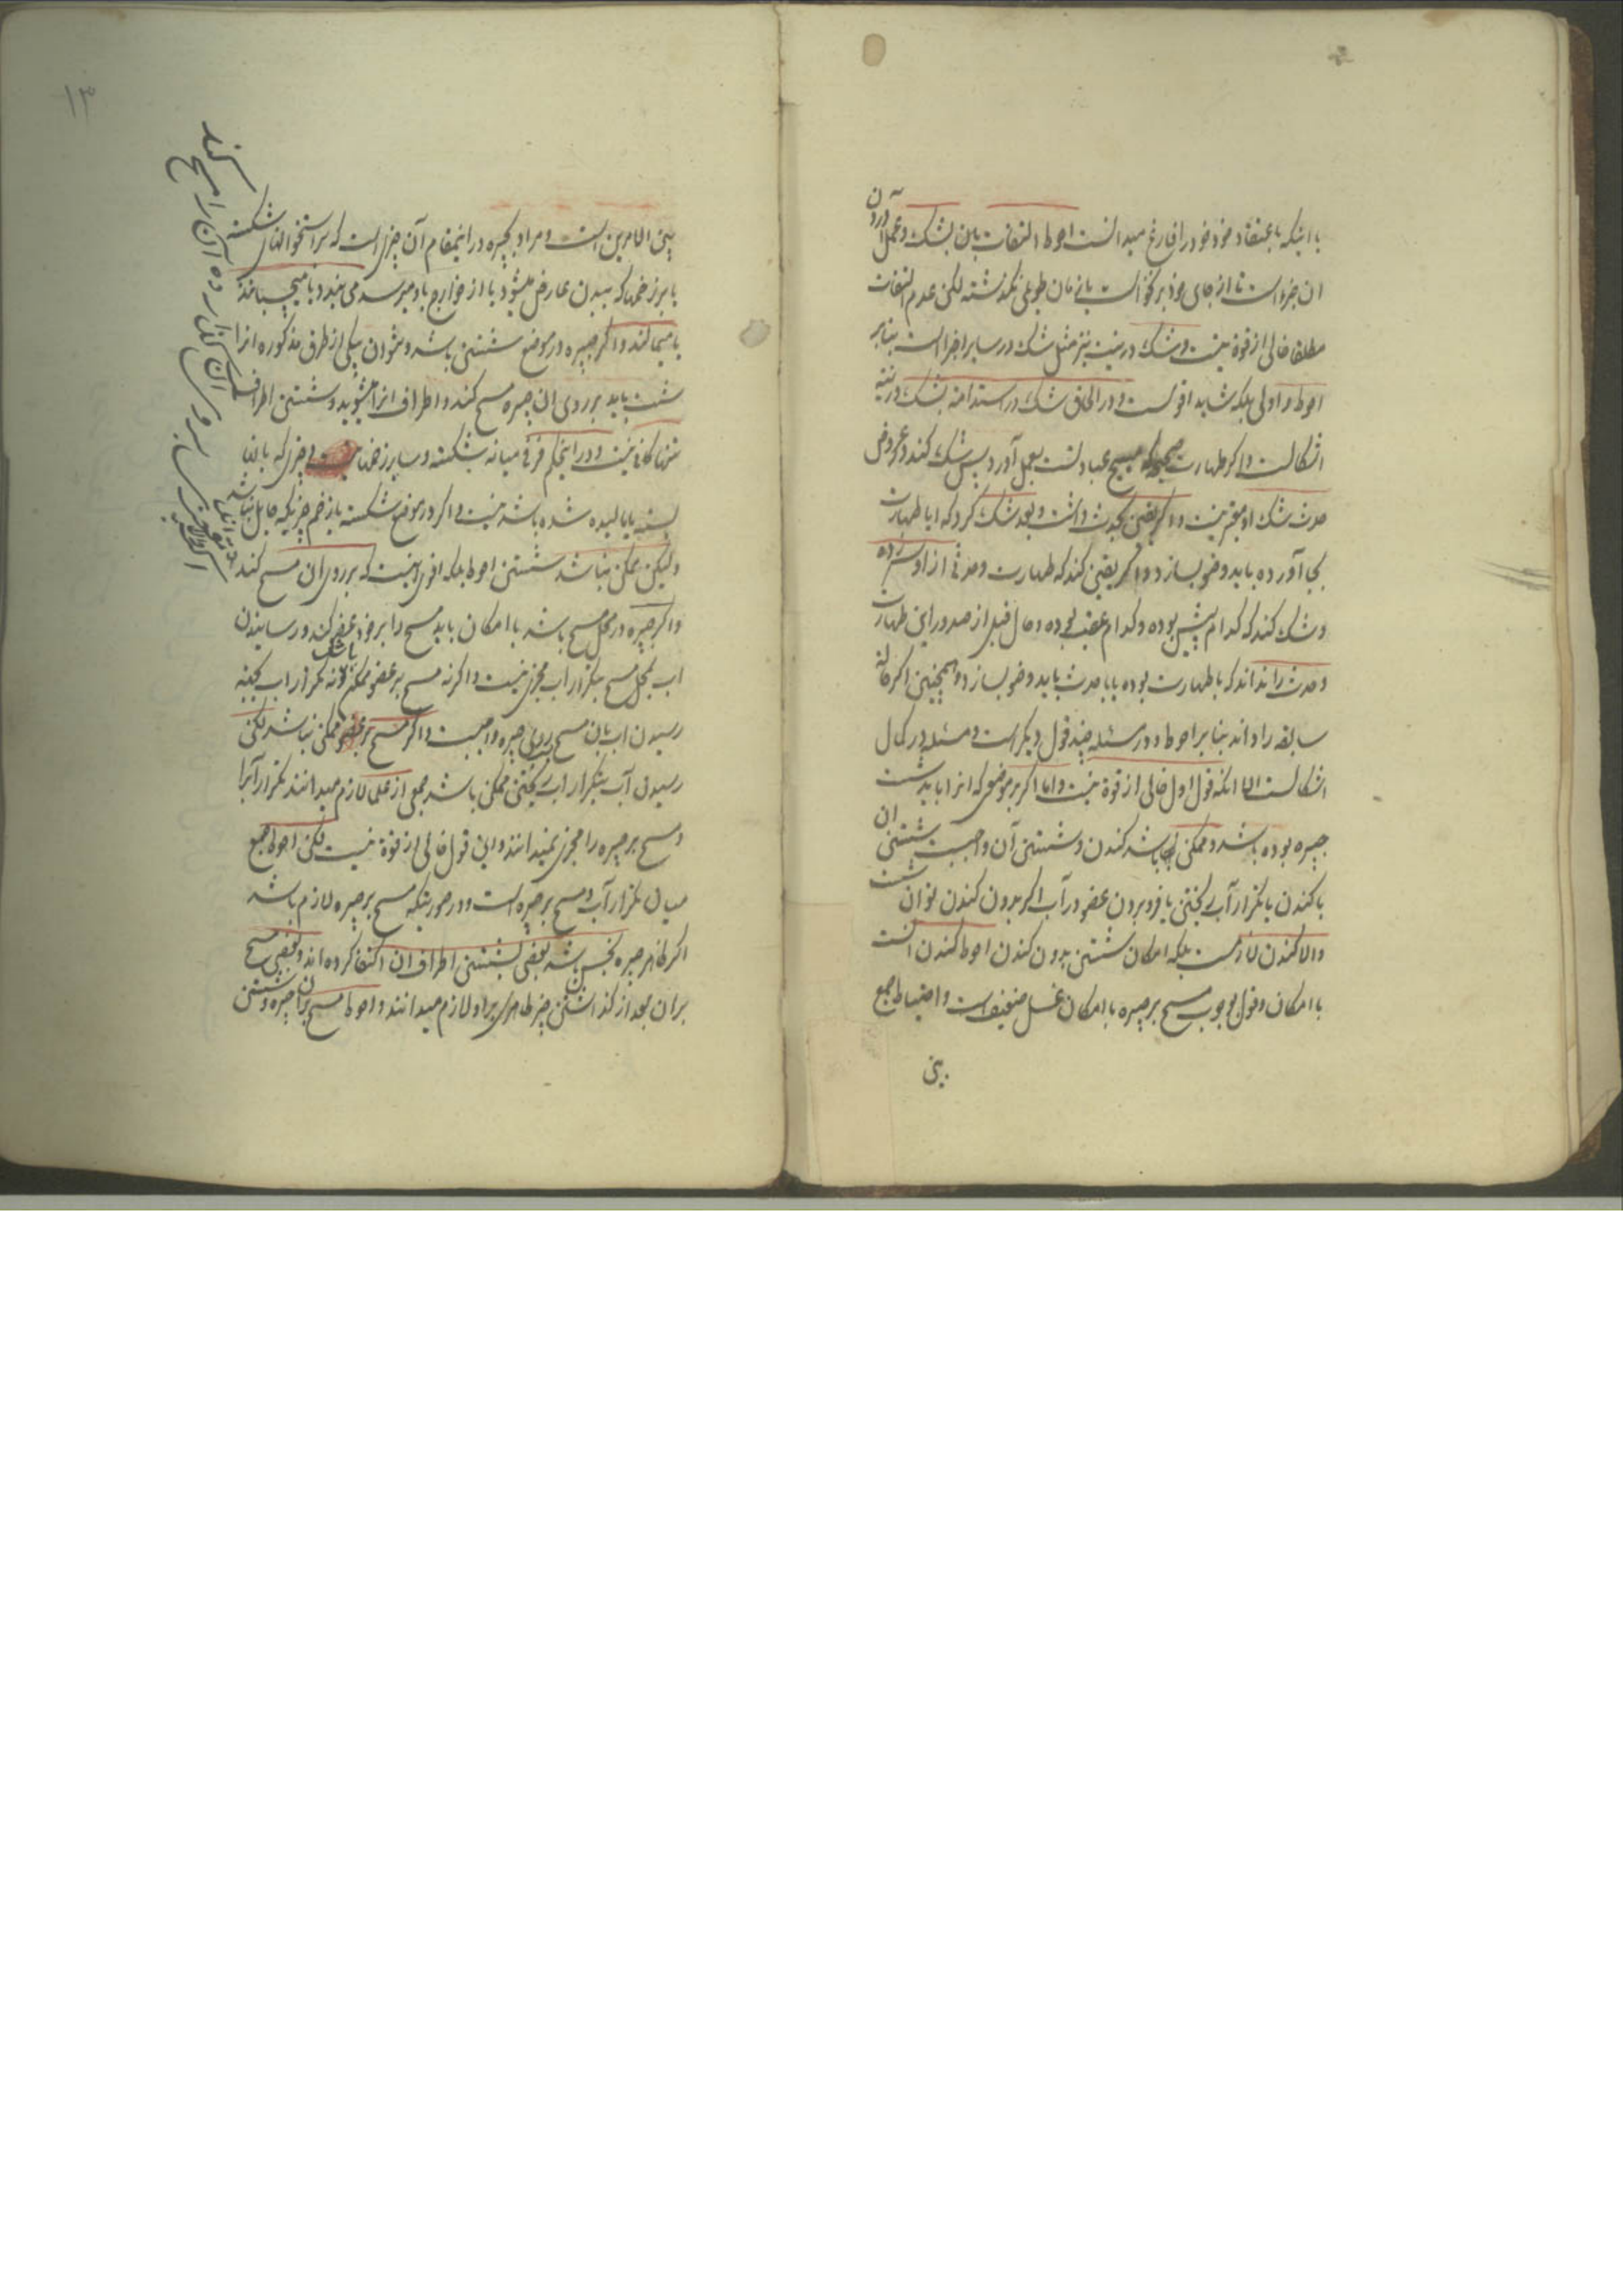 با اینکه باعتقاد خود خود را فارغ میدانست احوط التفات بان شکست و عمل آوردن
ان جزء است تا از جای خود برنخواست یا زمان طویلی نکذشته لکن عدم التفات
مطلقا خالی از قوة نیست و شک در نیت نیز مثل شک در سایر اجزا است بنابر
احوط و اولی بلکه شاید اقوست و در الحاق شک در استدامة بشک در نیة
اشکالست و اکر طهارت صحیح عبادتست بعمل آورد پس شک کند در عروض
حدث شک او معتبر نیست و اکر یقین بحدث داشت و بعد شک کرد که ایا طهارت
بجا آورده باید وضو بسازد و اکر یقین کند که طهارت و حدثی از او سر زده
و شک کند که کدام پیش بوده و کدام عقب بوده و حال قبل از صدور این طهارت
و حدث را نداند که با طهارت بوده یا با حدث باید وضو بسازد و همچنین اکر حالة
سابقه را داند بنابر احوط و در مسئله چند قول دیکر است و مسئله در کمال
اشکالست الا انکه قول اول خالی از قوة نیست و اما اکر بر موضعی که انرا باید شست
جبیره بوده باشد و ممکن باشد کندن و شستن آن واجبست شستن ان
یا کندن یا بتکرار آب ریختن یا فرو بردن عضو در آب اکر بدون کندن توان شست
والا کندن لازمست بلکه امکان شستن بدون کندن احوط کندن است
با امکان و قول بوجوب مسح بر جبیره با امکان غسل ضعیف است و احتیاط جمع
بین
۱۳
بین الامرین است و مراد بجبیره در اینمقام آن چیزی است که بر استخوانهای شکسته
یا بر زخمها که ببدن عارض میشود یا از خوارج باو میرسد می بندد یا میچسبانند
یا میمالند و اکر جبیره در موضع شستن باشد و نتوان بیکی از طرق مذکوره انرا
شست باید بر روی ان جبیره مسح کند و اطراف انرا بشوید و شستن اطراف
تنها کافی نیست و در اینحکم فرقی میانه شکسته و سایر زخمها نیست و چیزی که بانها
بسته یا مالیده شده باشد نیست و اکر در موضع شکسته یا زخم چیزیکه حایل باشد نباشد
ولیکن ممکن نباشد شستن احوط بلکه اقوی اینست که بر روی ان مسح کند
و اکر جبیره در محل مسح باشد با امکان باید مسح را بر خود عضو کند و رسانیدن
اب بمحل مسح بتکرار اب مجزی نیست و اکر نه مسح بر عضو ممکن باشد و نه تکرار اب بجهة
رسیدن اب بان مسح بر روی جبیره واجبست و اکر مسح بر عضو ممکن نباشد لکن
رسیدن آب بتکرار اب ریختن ممکن باشد جمعی از علما لازم میدانند تکرار آبرا
و مسح بر جبیره را مجزی نمیدانند و این قول خالی از قوة نیست لکن احوط جمع
میان تکرار آب و مسح بر جبیره است و در صورتیکه مسح بر جبیره لازم باشد
اکر ظاهر جبیره نجس باشد بعضی بشستن اطراف ان اکتفا کرده اند و بعضی مسح
بر ان بعد از کذاشتن چیز طاهری بر او لازم میدانند و احوط مسح بر ان جبیره و شستن